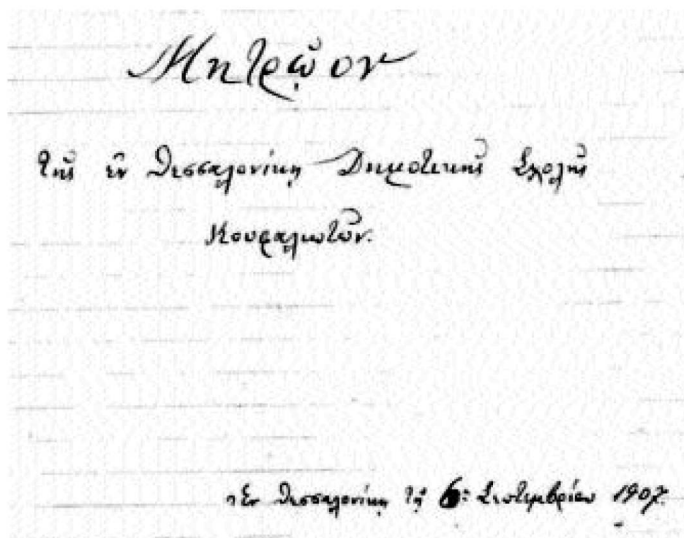 Μητρῷον
τῆς ἐν Θεσσαλονίκῃ Δημοτικῆς Σχολῆς
Κουραλιωτῶν.
Ἐν Θεσσαλονίκῃ τῇ 6ῃ: Σεπτεμβρίου 1907.